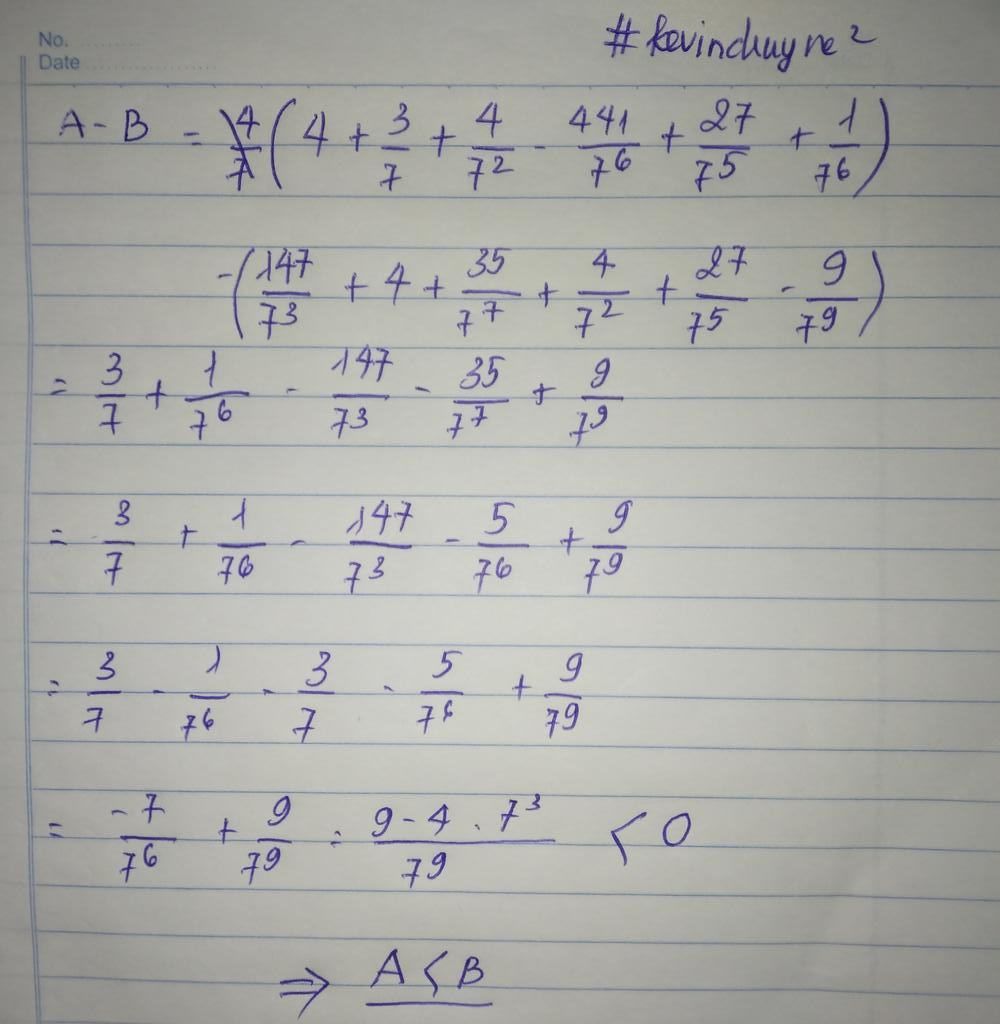 No. ............
Date ....................
#kevinchuyne²
A - B = (4 + 3/7 + 4/7² - 441/7⁶ + 27/7⁵ + 1/7⁶)
-(147/7³ + 4 + 35/7⁷ + 4/7² + 27/7⁵ - 9/7⁹)
= 3/7 + 1/7⁶ - 147/7³ - 35/7⁷ + 9/7⁹
= 3/7 + 1/7⁶ - 147/7³ - 5/7⁶ + 9/7⁹
= 3/7 - 1/7⁶ - 3/7 - 5/7⁶ + 9/7⁹
= -7/7⁶ + 9/7⁹ = (9 - 4 . 7³)/7⁹ < 0
⇒ A < B